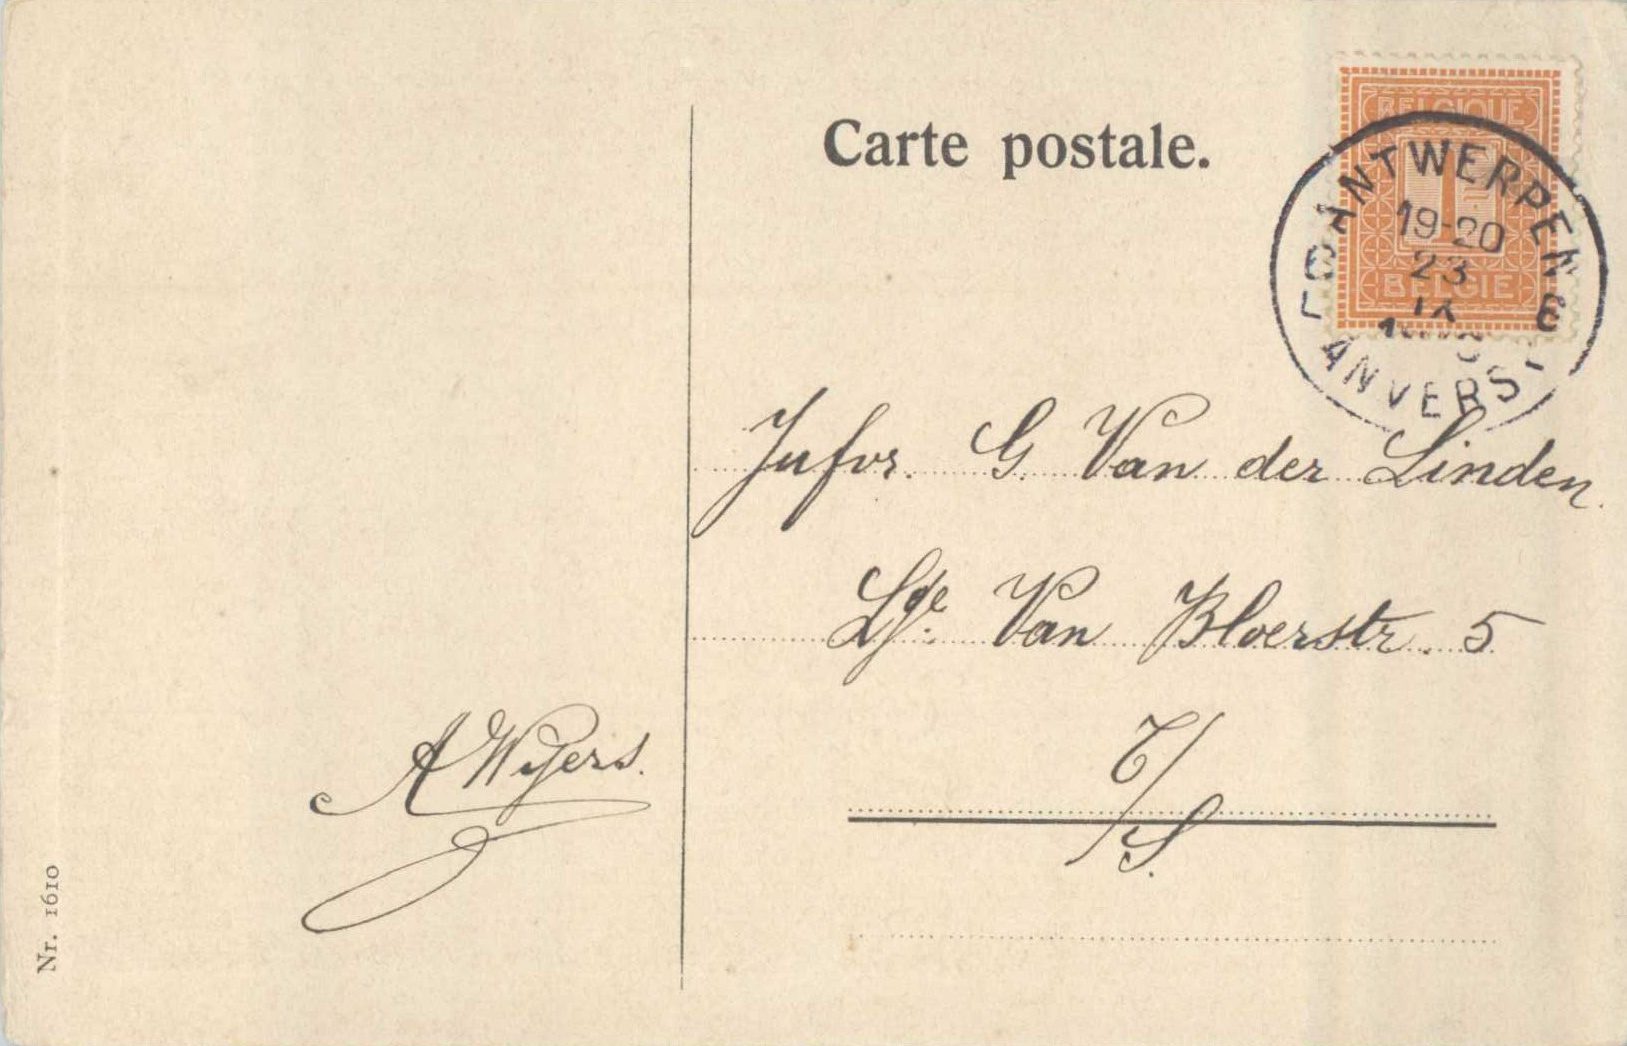 Carte postale.
BELGIQUE
1
BELGIE
ANTWERPEN
19-20
23
IX
ANVERS
Jufvr. G Van der Linden.
Lge Van Bloerstr. 5
T/S.
A Wyers.
Nr. 1610